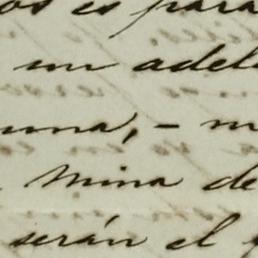 os es para
un adel
una, – m
mina de
serán el